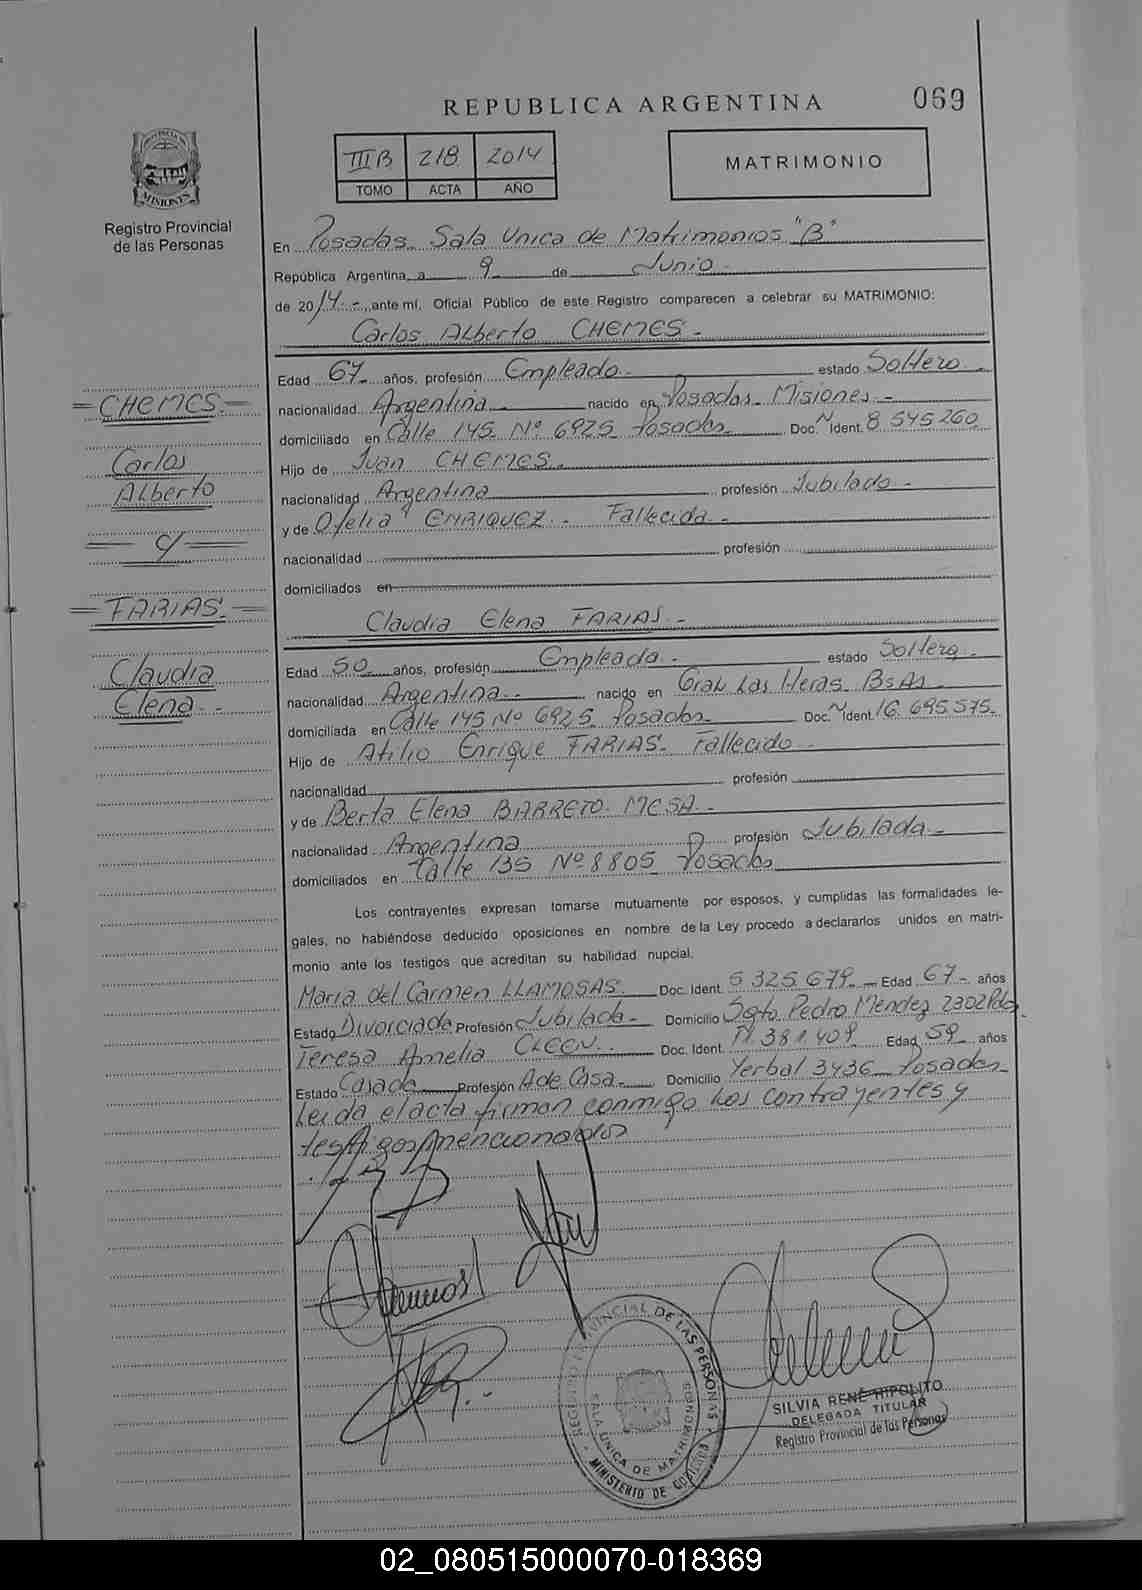 REPUBLICA ARGENTINA
069
PROVINCIA DE
MISIONES
Registro Provincial
de las Personas
III B 218 2014
TOMO ACTA AÑO
MATRIMONIO
En Posadas Sala Unica de Matrimonios "B"
República Argentina, a 9 de Junio.-
de 2014.-, ante mí, Oficial Público de este Registro comparecen a celebrar su MATRIMONIO:
Carlos Alberto CHEMES.-
Edad 67 años, profesión Empleado.- estado Soltero
nacionalidad Argentina.- nacido en Posadas Misiones.-
domiciliado en Calle 145 Nº 6925 Posadas Doc. N Ident. 8 545 260
Hijo de Juan CHEMES.-
nacionalidad Argentina profesión Jubilado.-
y de Ofelia ENRIQUEZ.- Fallecida.-
nacionalidad profesión
domiciliados en
Claudia Elena FARIAS.-
Edad 50 años, profesión Empleada.- estado Soltera.-
nacionalidad Argentina.- nacido en Gral Las Heras Bs As
domiciliada en Calle 145 Nº 6925 Posadas Doc. N Ident. 16 695.575.-
Hijo de Atilio Enrique FARIAS.- Fallecido.-
nacionalidad profesión
y de Berta Elena BARRETO MESA.-
nacionalidad Argentina profesión Jubilada.-
domiciliados en Calle 135 Nº 8805 Posadas
Los contrayentes expresan tomarse mutuamente por esposos, y cumplidas las formalidades le-
gales, no habiéndose deducido oposiciones en nombre de la Ley procedo a declararlos unidos en matri-
monio ante los testigos que acreditan su habilidad nupcial.
Maria del Carmen LLAMOSAS Doc. Ident. 5 325 679.- Edad 67.- años
Estado Divorciada Profesión Jubilada.- Domicilio Sgto. Pedro Mendez 2302 Pdas
Teresa Amelia Doc. Ident. 11.381.409 Edad 59 años
Estado Casada Profesión A de Casa.- Domicilio Yerbal 3436 Posadas
Leida el acta firman conmigo Los contrayentes y
testigos mencionados
= CHEMES =
Carlos
Alberto
= c/ =
= FARIAS. =
Claudia
Elena.-
REGISTRO PROVINCIAL DE LAS PERSONAS
SALA UNICA DE MATRIMONIOS
MINISTERIO DE GOBIERNO
SILVIA RENÉ HIPOLITO
DELEGADA TITULAR
Registro Provincial de las Personas
02_080515000070-018369